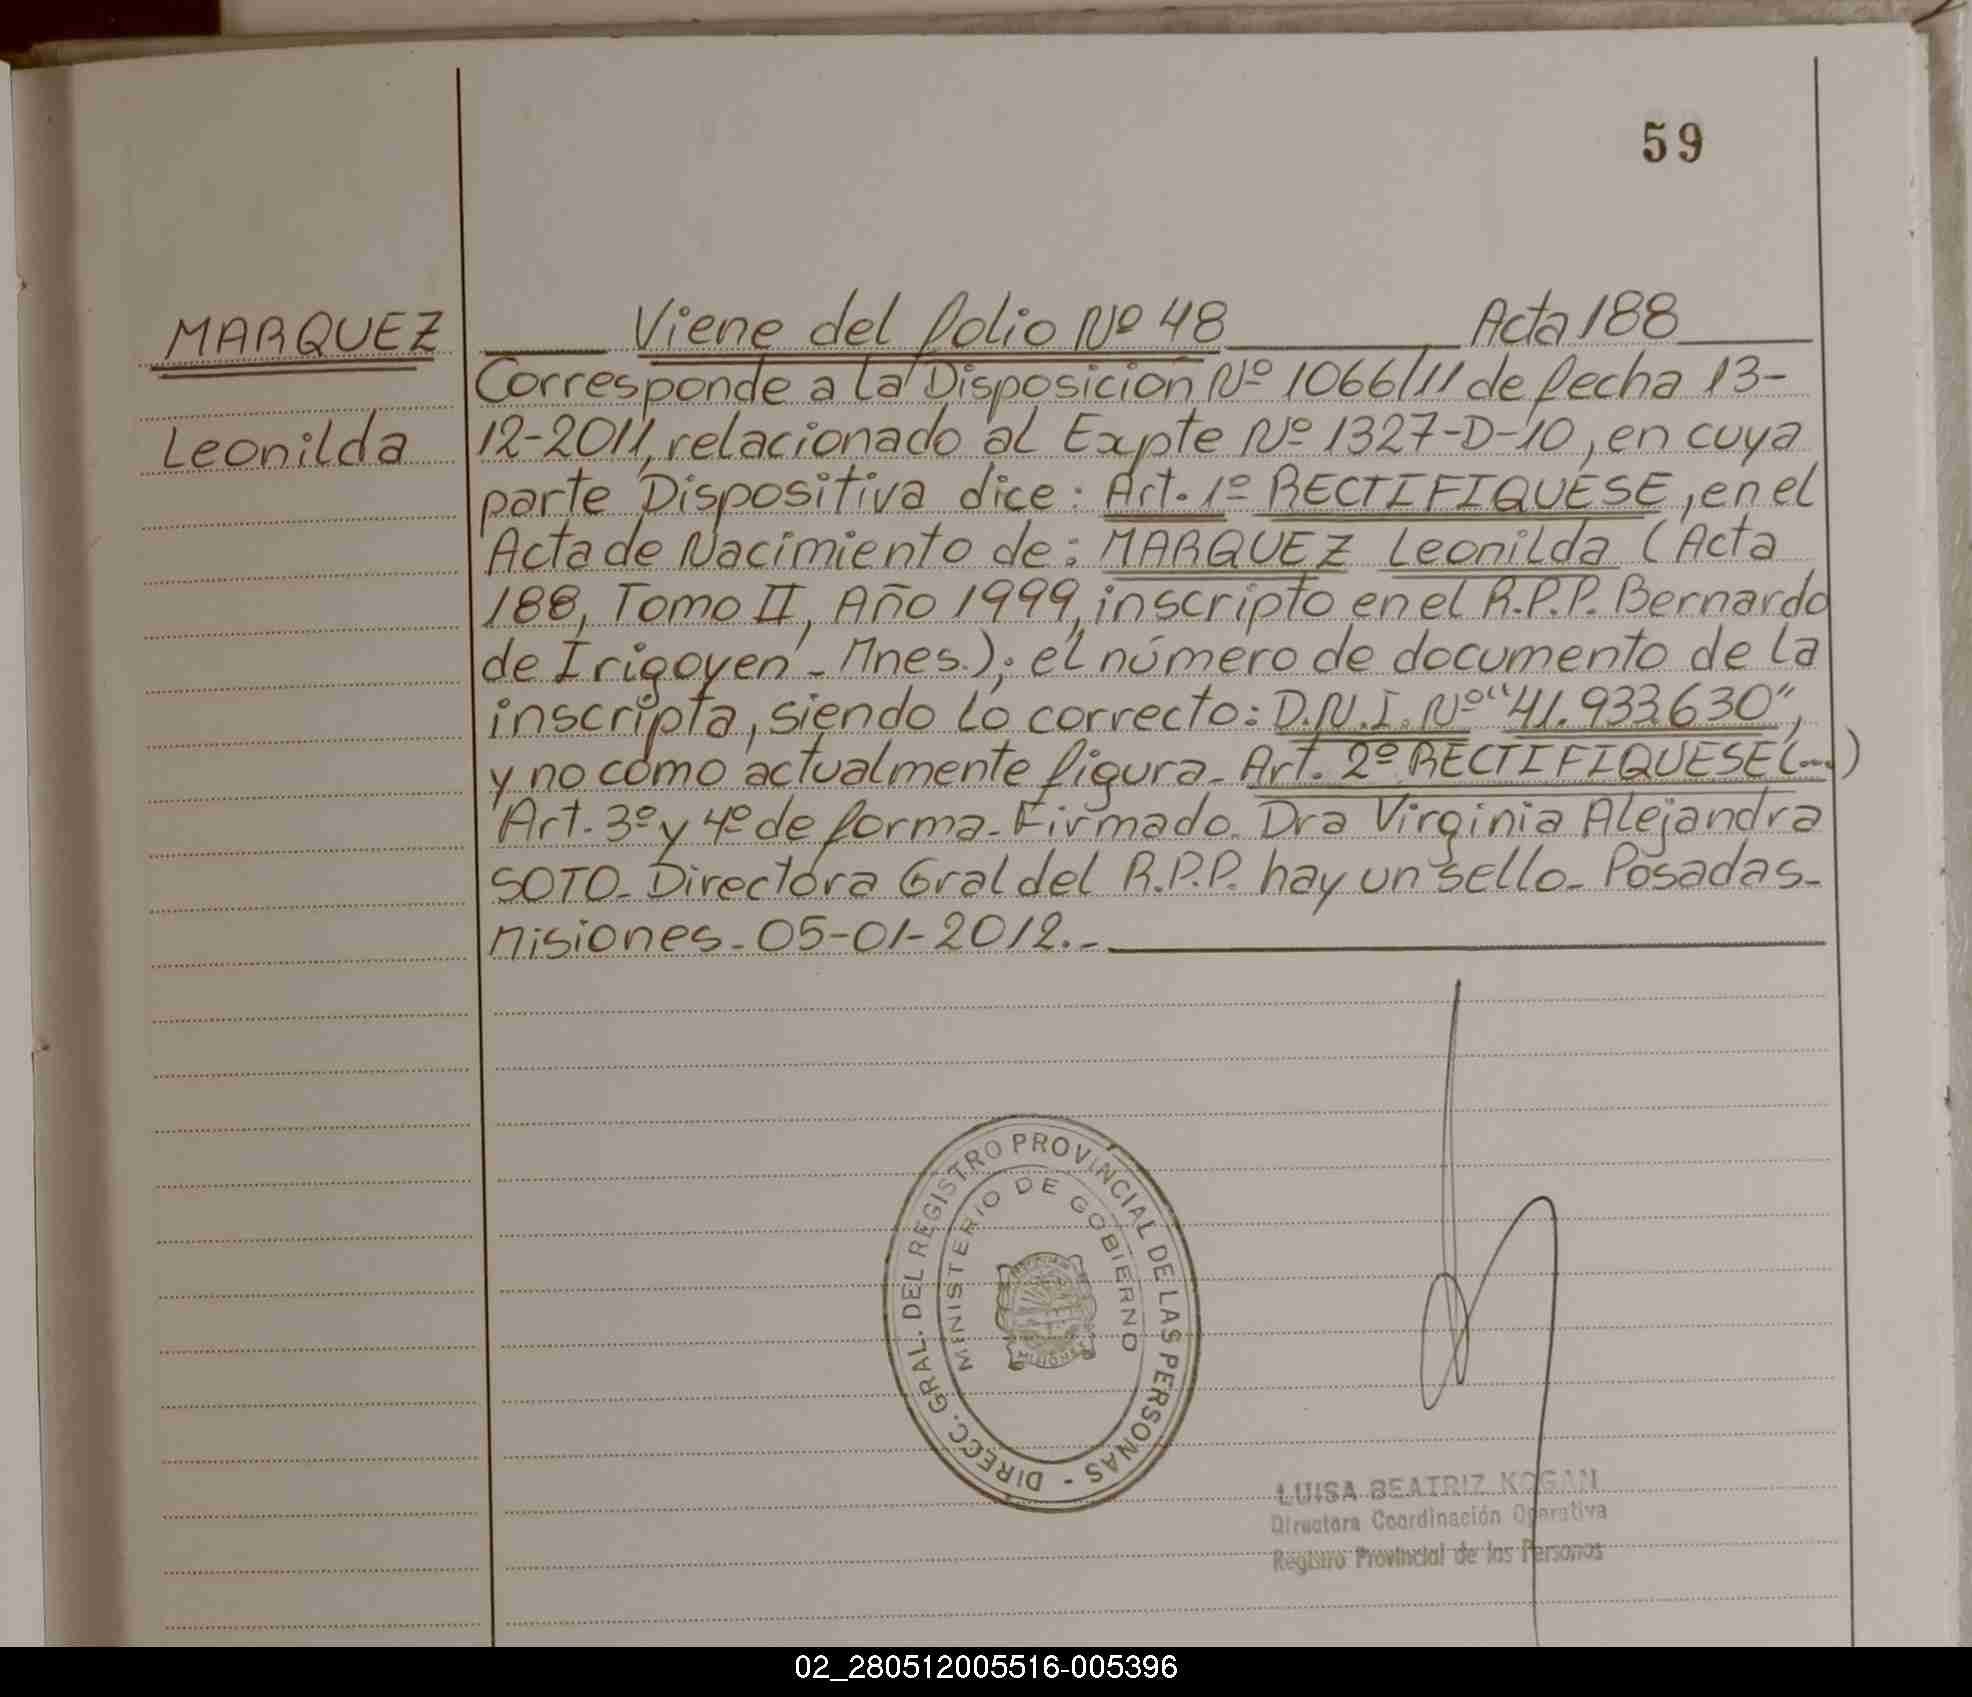 59
MARQUEZ
Leonilda
Viene del folio Nº 48 Acta 188
Corresponde a la Disposición Nº 1066/11 de fecha 13-
12-2011, relacionado al Expte Nº 1327-D-10, en cuya
parte Dispositiva dice: Art. 1º RECTIFIQUESE, en el
Acta de Nacimiento de: MARQUEZ Leonilda (Acta
188, Tomo II, Año 1999, inscripto en el R.P.P. Bernardo
de Irigoyen - Mnes.); el número de documento de la
inscripta, siendo lo correcto: D.N.I. Nº "41.933.630",
y no como actualmente figura. Art. 2º RECTIFIQUESE (...)
Art. 3º y 4º de forma. Firmado. Dra Virginia Alejandra
SOTO. Directora Gral del R.P.P. hay un sello. Posadas.
Misiones. 05-01-2012.-
DIRECC. GRAL. DEL REGISTRO PROVINCIAL DE LAS PERSONAS -
MINISTERIO DE GOBIERNO
MISIONES
LUISA BEATRIZ KOGAN
Directora Coordinación Operativa
Registro Provincial de las Personas
02_280512005516-005396